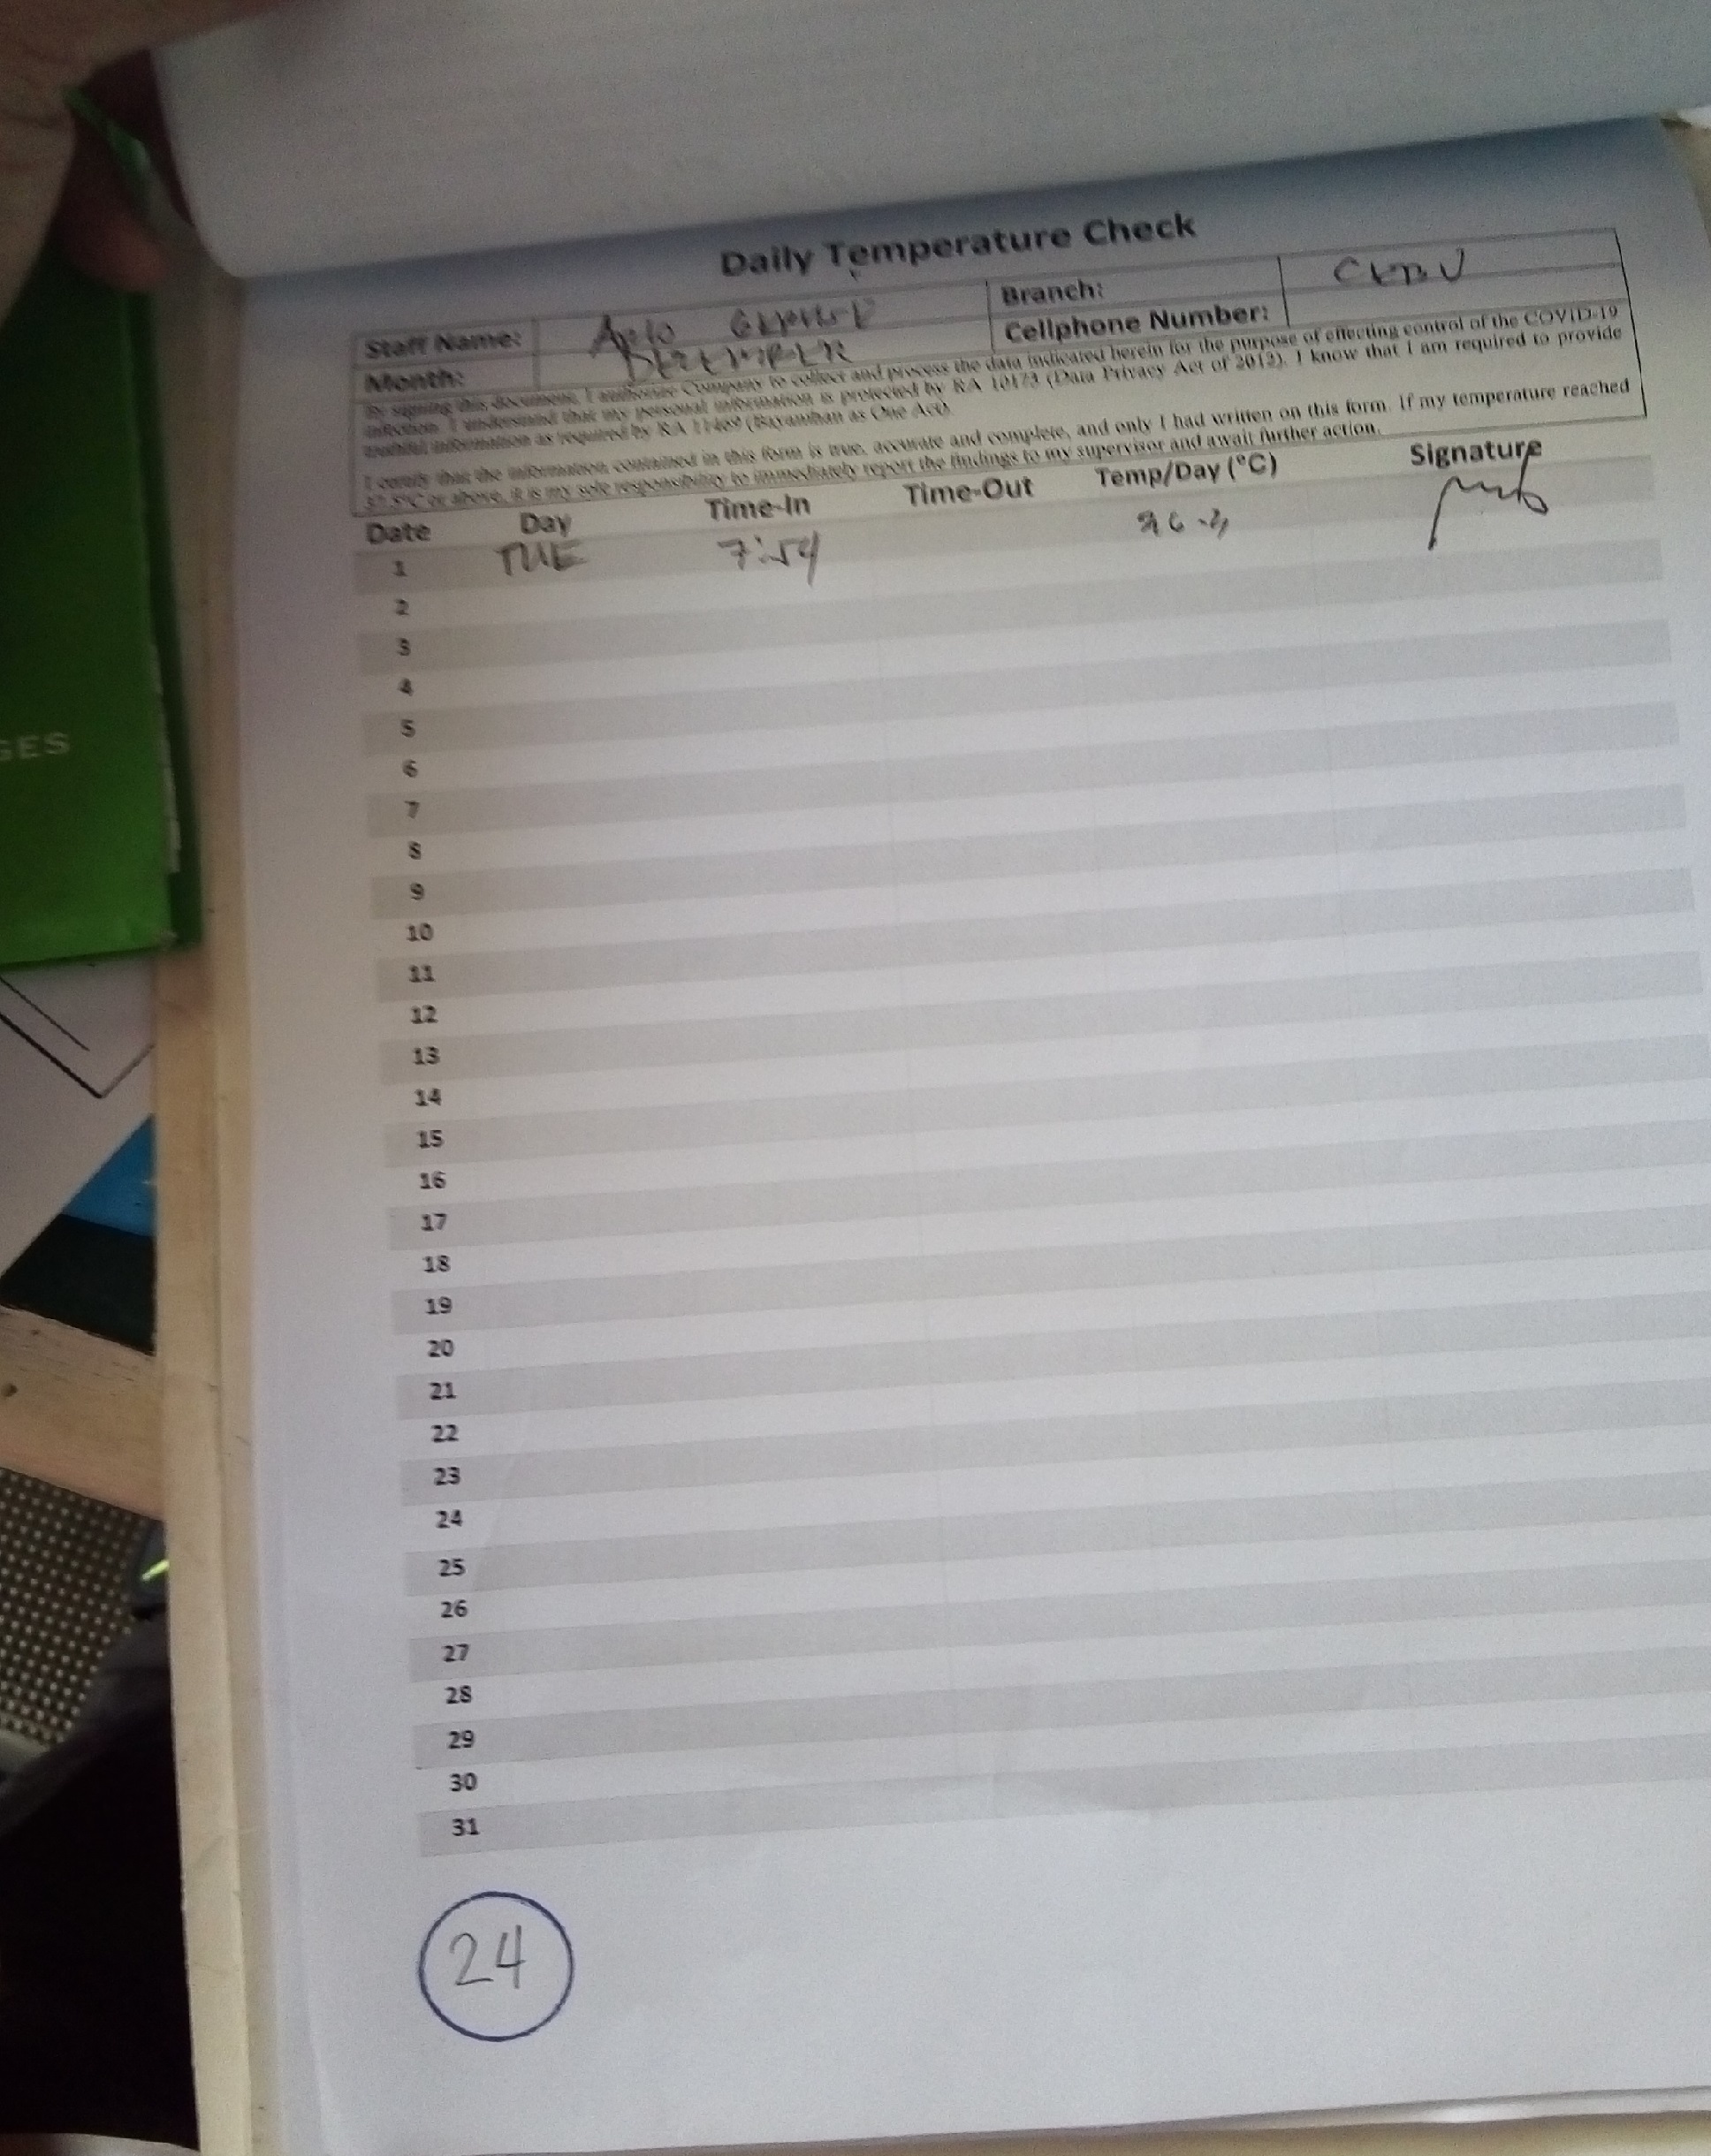 Daily Temperature Check
Staff Name: Branch: CEBU
Month: DECEMBER Cellphone Number:
By signing this document, I authorize Company to collect and process the data indicated herein for the purpose of effecting control of the COVID-19
infection. I understand that my personal information is protected by RA 10173 (Data Privacy Act of 2012). I know that I am required to provide
truthful information as required by RA 11469 (Bayanihan as One Act).
I certify that the information contained in this form is true, accurate and complete, and only I had written on this form. If my temperature reached
37.5°C or above, it is my sole responsibility to immediately report the findings to my supervisor and await further action.
Date Day Time-In Time-Out Temp/Day (°C) Signature
1 TUE 7:54
2
3
4
5
6
7
8
9
10
11
12
13
14
15
16
17
18
19
20
21
22
23
24
25
26
27
28
29
30
31
24
GES